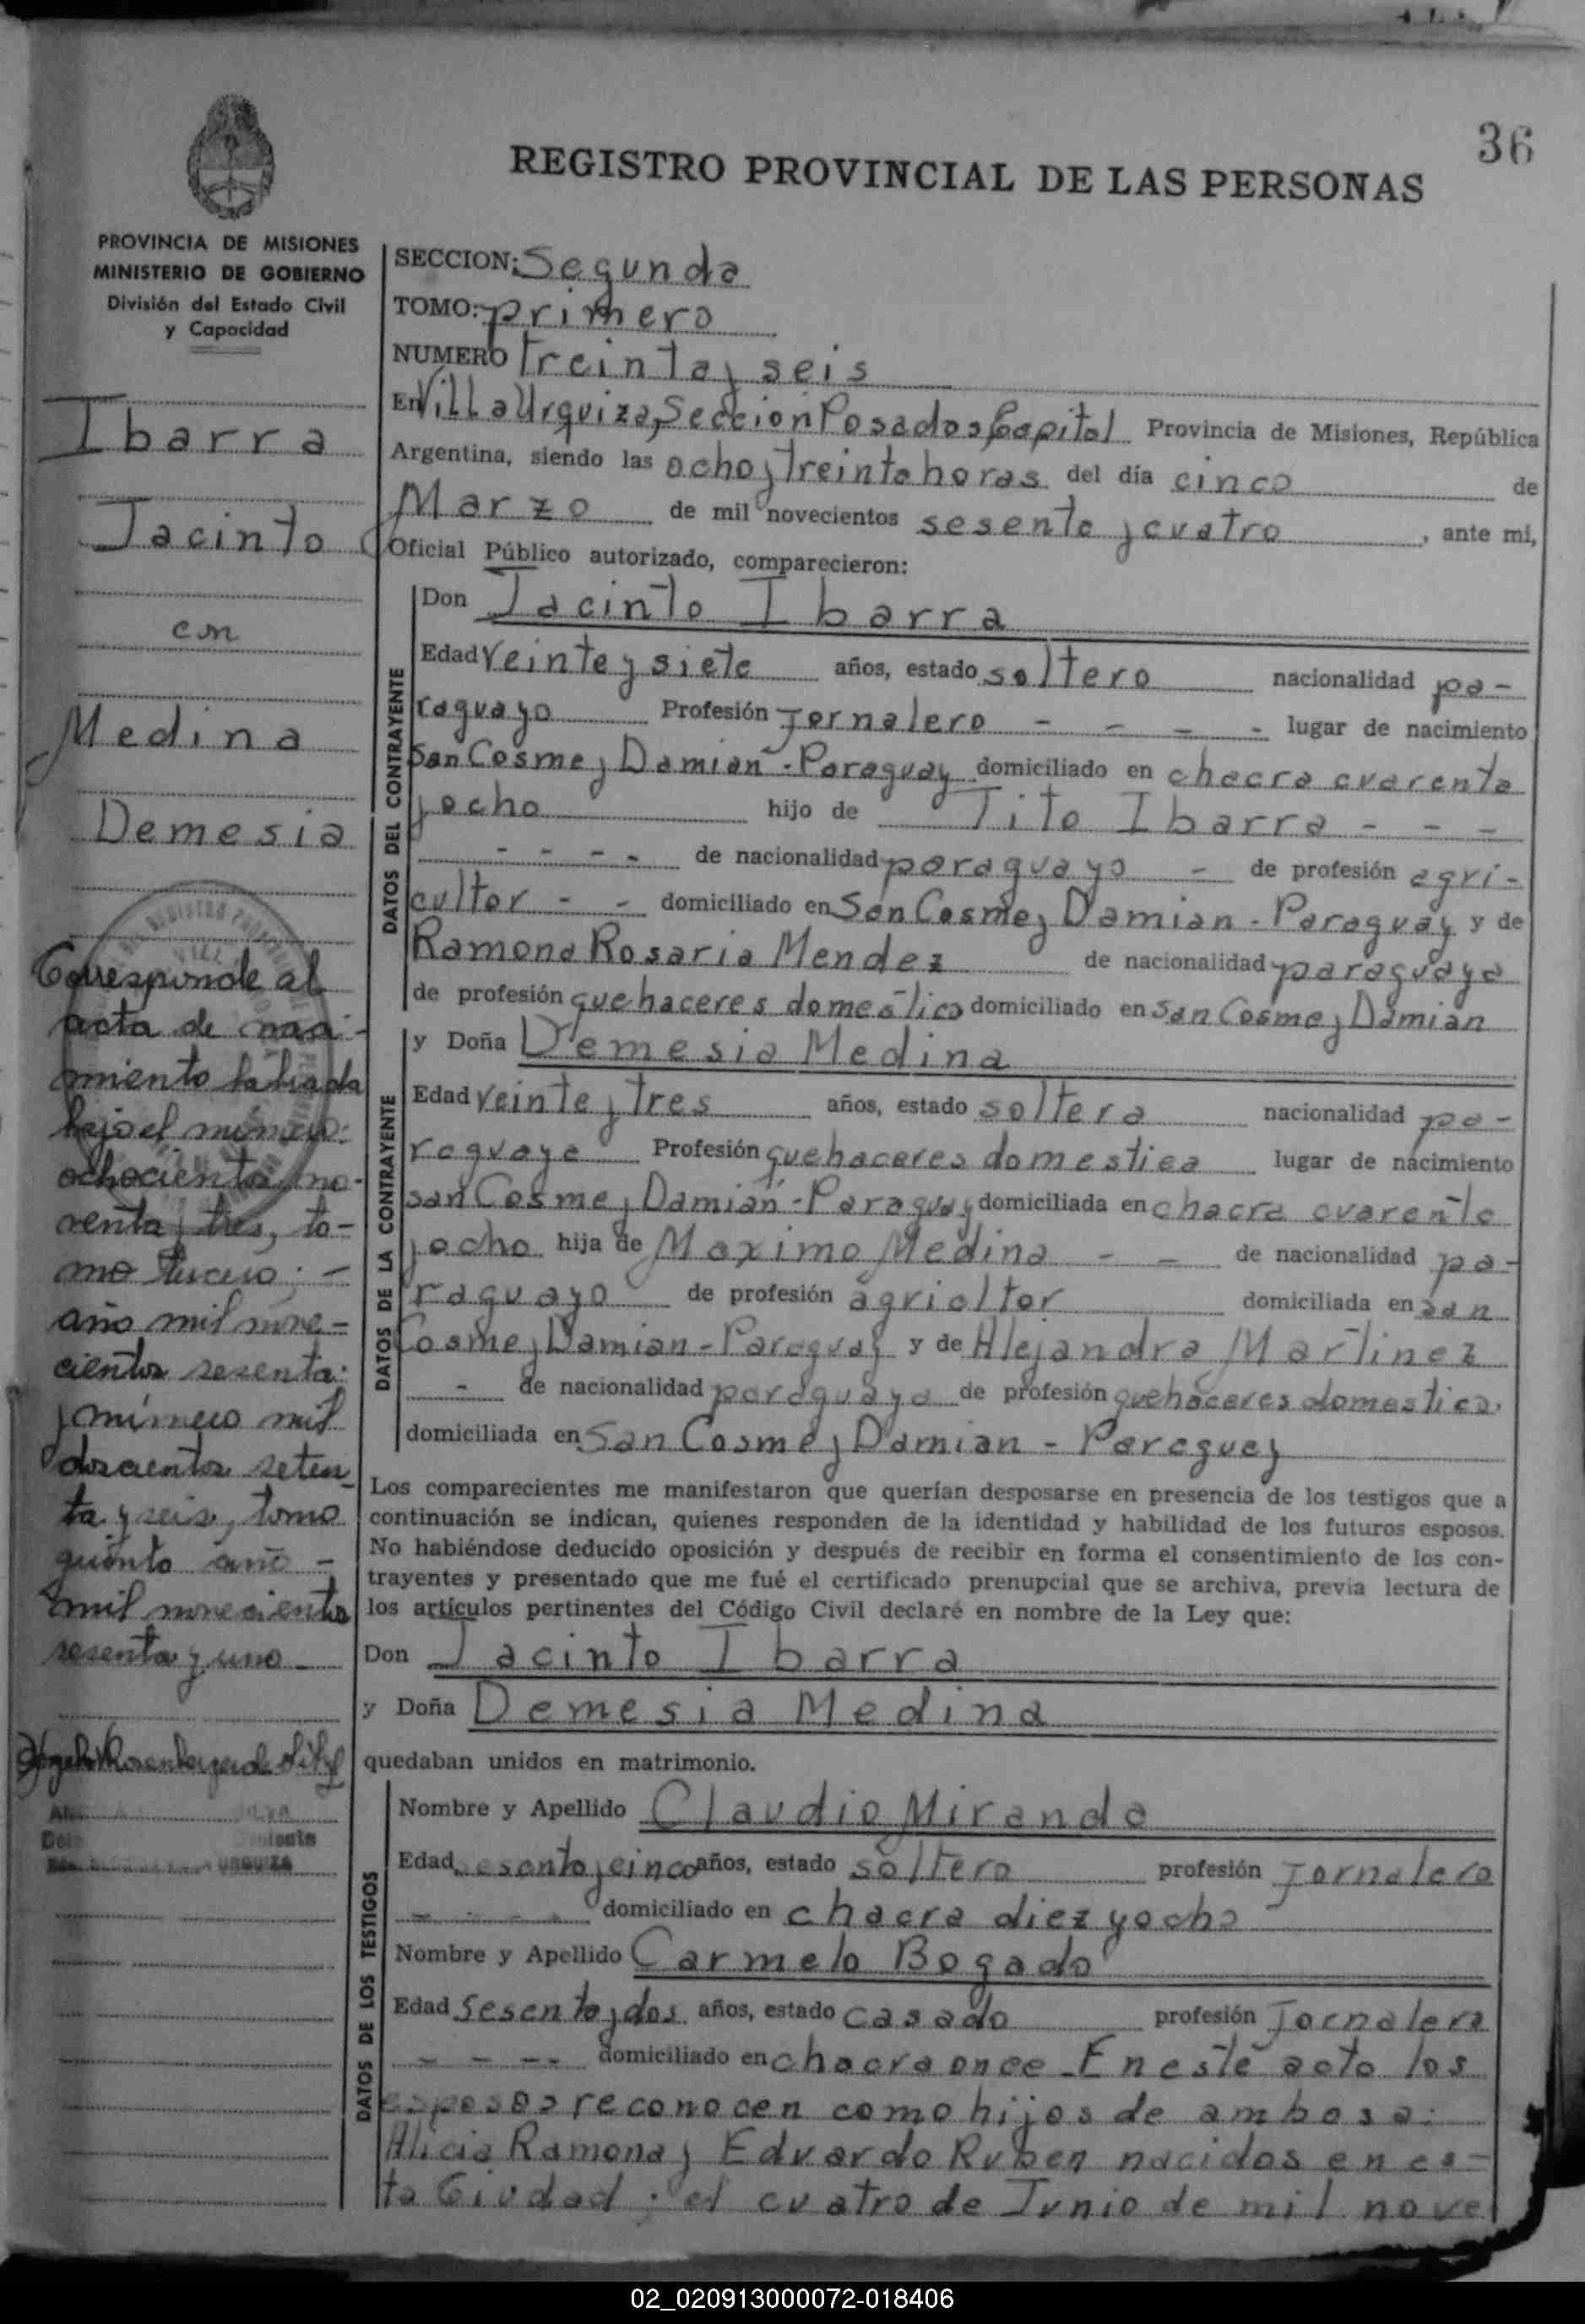 36
REGISTRO PROVINCIAL DE LAS PERSONAS
PROVINCIA DE MISIONES
MINISTERIO DE GOBIERNO
División del Estado Civil
y Capacidad
Ibarra
Jacinto
con
Medina
Demesia
Corresponde al
acta de naci-
miento labrada
bajo el número:
ochocientos no-
venta y tres, to-
mo tercero; -
año mil nove-
cientos sesenta:
y número mil
doscientos seten
ta y seis, tomo
quinto año -
mil novecientos
sesenta y uno
SECCION: Segunda
TOMO: primero
NUMERO treinta y seis
En Villa Urquiza, Sección Posadas, Capital Provincia de Misiones, República
Argentina, siendo las ocho y treinta horas del día cinco de
Marzo de mil novecientos sesenta y cuatro, ante mi,
Oficial Público autorizado, comparecieron:
DATOS DEL CONTRAYENTE
Don Jacinto Ibarra
Edad veinte y siete años, estado soltero nacionalidad pa-
raguayo Profesión Jornalero - - - - lugar de nacimiento
San Cosme y Damian - Paraguay domiciliado en chacra cuarenta
y ocho hijo de Tito Ibarra - - -
- - - - de nacionalidad paraguayo - de profesión agri-
cultor - - domiciliado en San Cosme y Damian - Paraguay y de
Ramona Rosaria Mendez de nacionalidad paraguaya
de profesión quehaceres domestico domiciliado en San Cosme y Damian
DATOS DE LA CONTRAYENTE
y Doña Demesia Medina
Edad veinte y tres años, estado soltera nacionalidad pa-
raguaya Profesión quehaceres domestica lugar de nacimiento
san Cosme y Damian - Paraguay domiciliada en chacra cuarenta
y ocho hija de Maximo Medina - - de nacionalidad pa-
raguayo de profesión agricltor domiciliada en san
Cosme y Damian - Paraguay y de Alejandra Martinez
- de nacionalidad paraguaya de profesión quehaceres domestica
domiciliada en San Cosme y Damian - Paraguay
Los comparecientes me manifestaron que querían desposarse en presencia de los testigos que a
continuación se indican, quienes responden de la identidad y habilidad de los futuros esposos.
No habiéndose deducido oposición y después de recibir en forma el consentimiento de los con-
trayentes y presentado que me fué el certificado prenupcial que se archiva, previa lectura de
los artículos pertinentes del Código Civil declaré en nombre de la Ley que:
Don Jacinto Ibarra
y Doña Demesia Medina
quedaban unidos en matrimonio.
DATOS DE LOS TESTIGOS
Nombre y Apellido Claudio Miranda
Edad sesenta y cinco años, estado soltero profesión Jornalero
- - - - domiciliado en chacra diez y ocho
Nombre y Apellido Carmelo Bogado
Edad Sesenta y dos años, estado casado profesión Jornalero
- - - - domiciliado en chacra once - En este acto los
esposos reconocen como hijos de ambos a:
Alicia Ramona y Eduardo Ruben nacidos en es-
ta Ciudad: el cuatro de Junio de mil nove
02_020913000072-018406